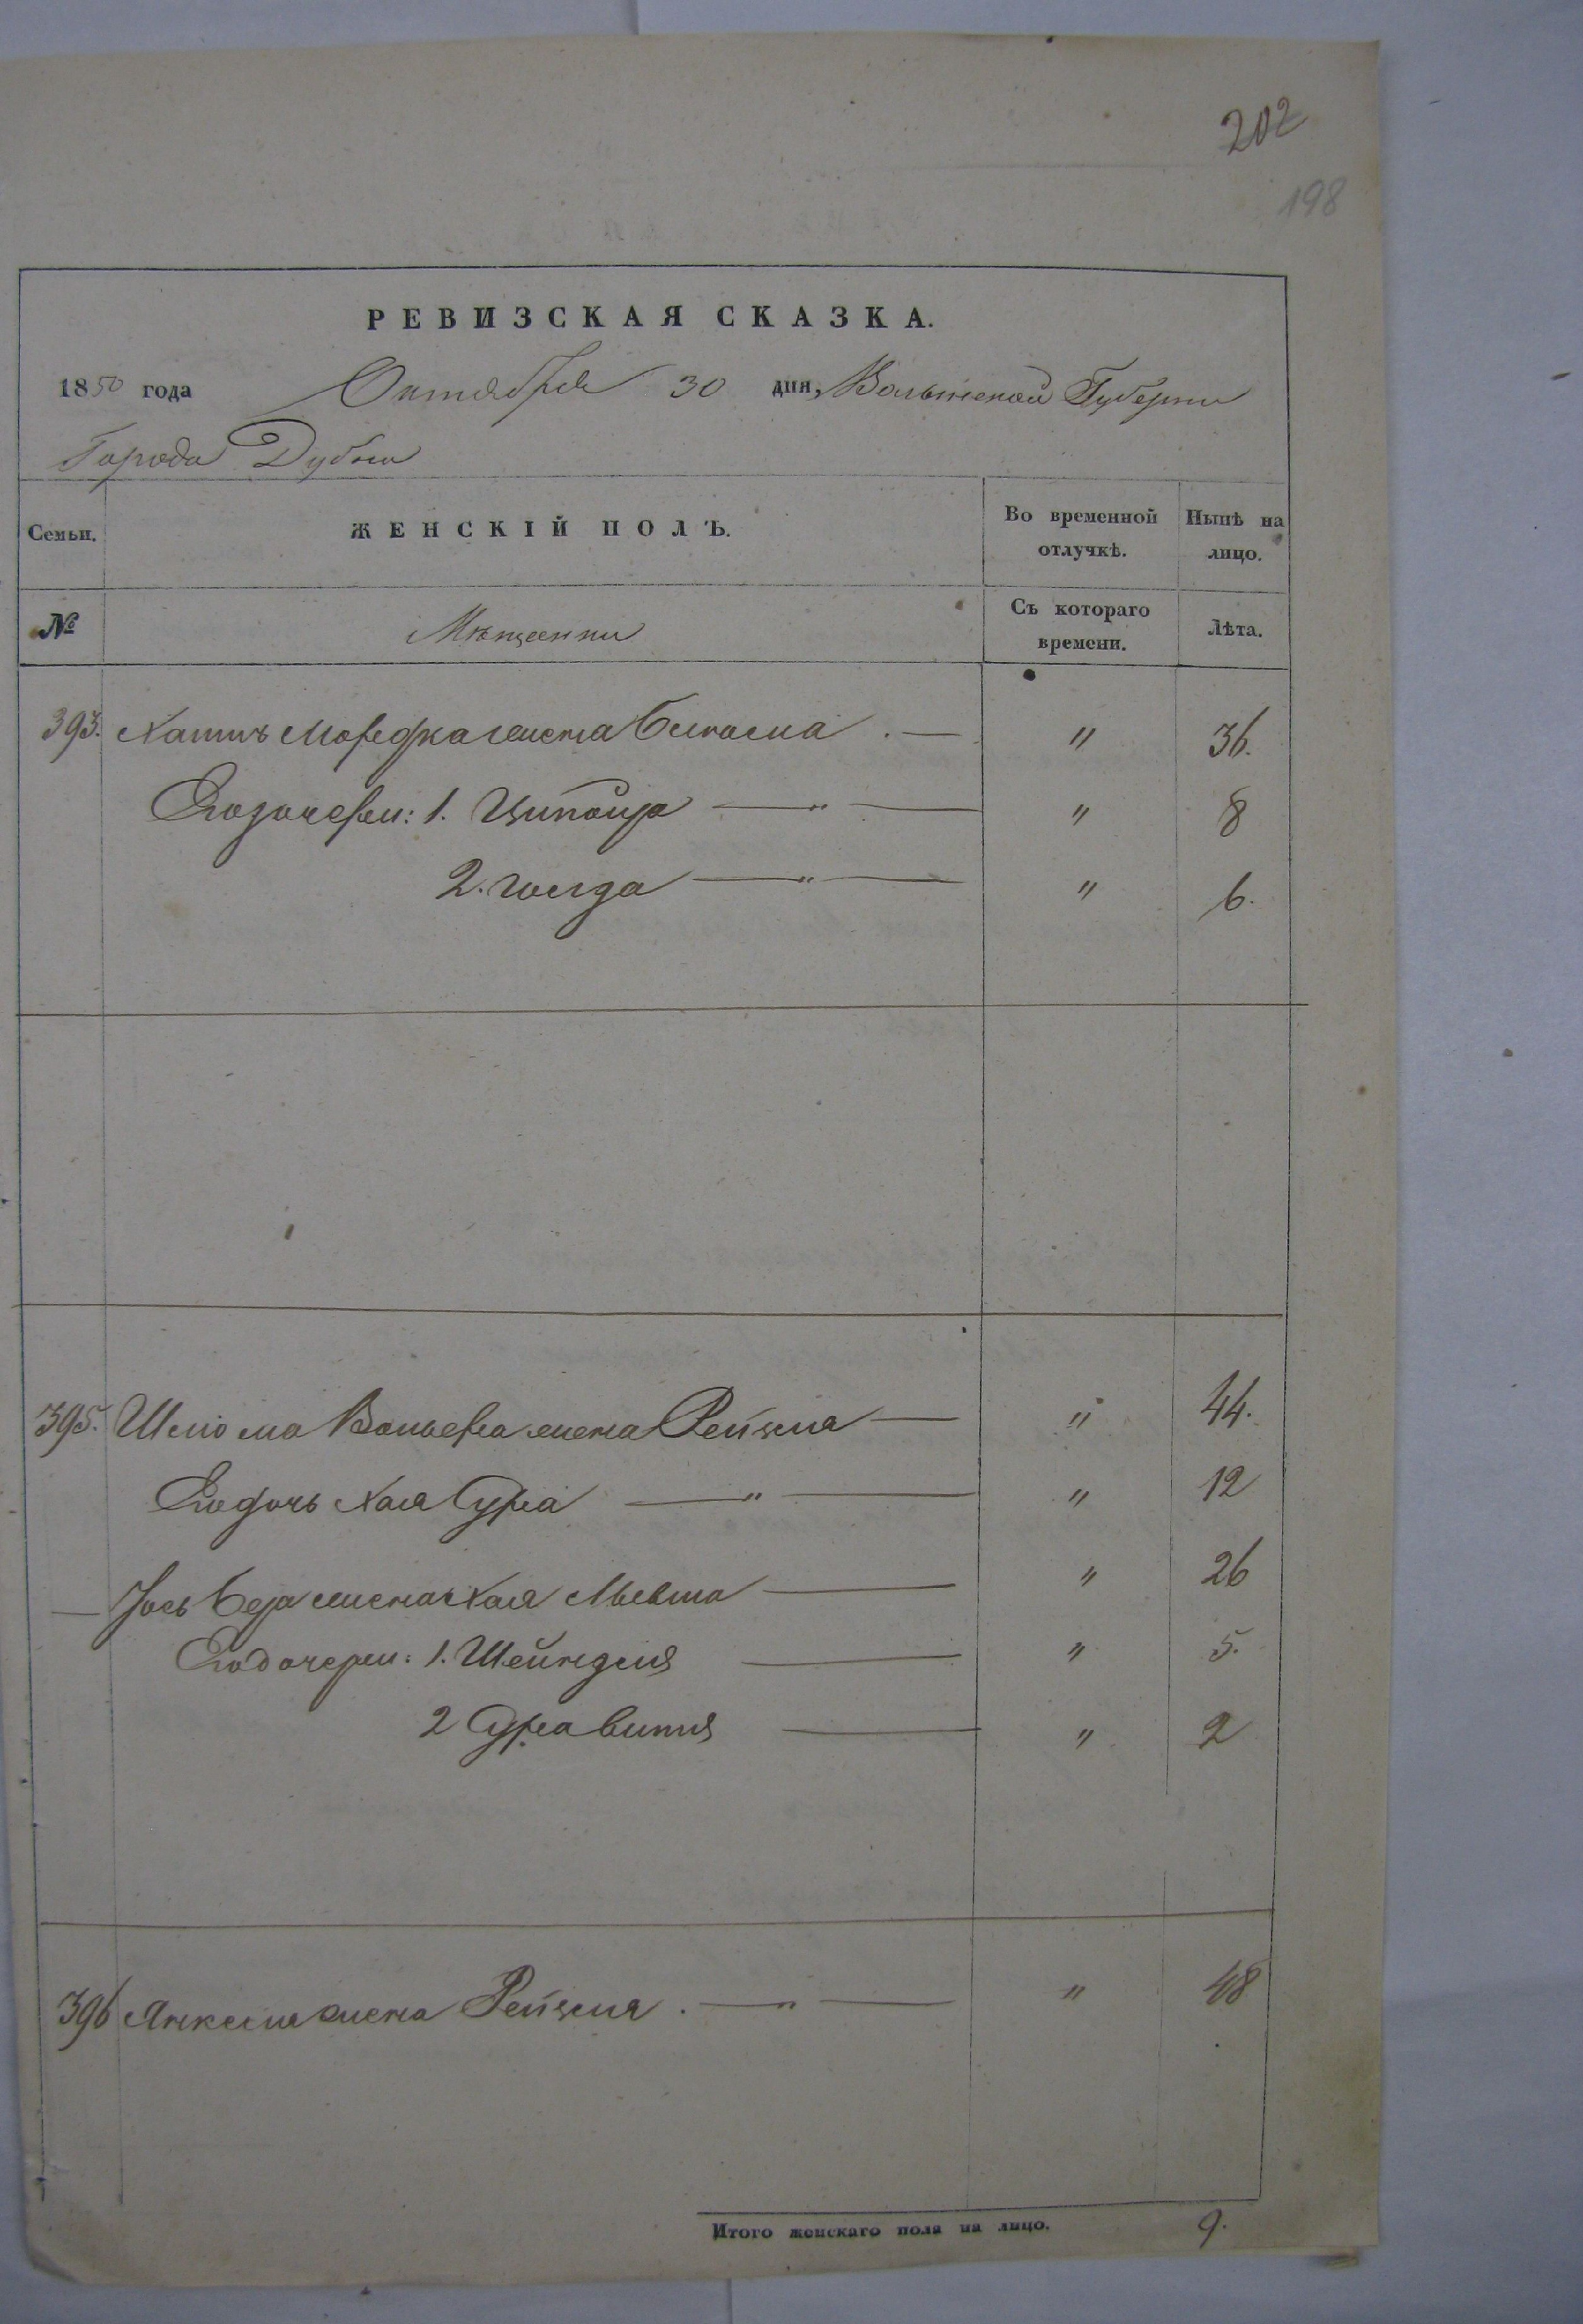 202
198
РЕВИЗСКАЯ СКАЗКА.
1850 года Октября 30 дня, Волынской Губернии
Города Дубно
Семьи. ЖЕНСКІЙ ПОЛЪ. Во временной отлучкѣ. Нынѣ на лицо.
№ Мѣщанки Съ котораго времени. Лѣта.
393. Мордка жена " 36.
Его дочери: 1. Ципойра — " — " 8
2. Голда — " — " 6.
395. Шлиома Вольфа жена Рейзля — " 44.
Его дочь Хая Сура — " — " 12
— Іось Бера жена Хая — " 26
Его дочери: 1. Шейндля — " 5.
2 Сура — " 2
396 Янкеля жена Рейзля. — " — " 48
Итого женскаго пола на лицо. 9.